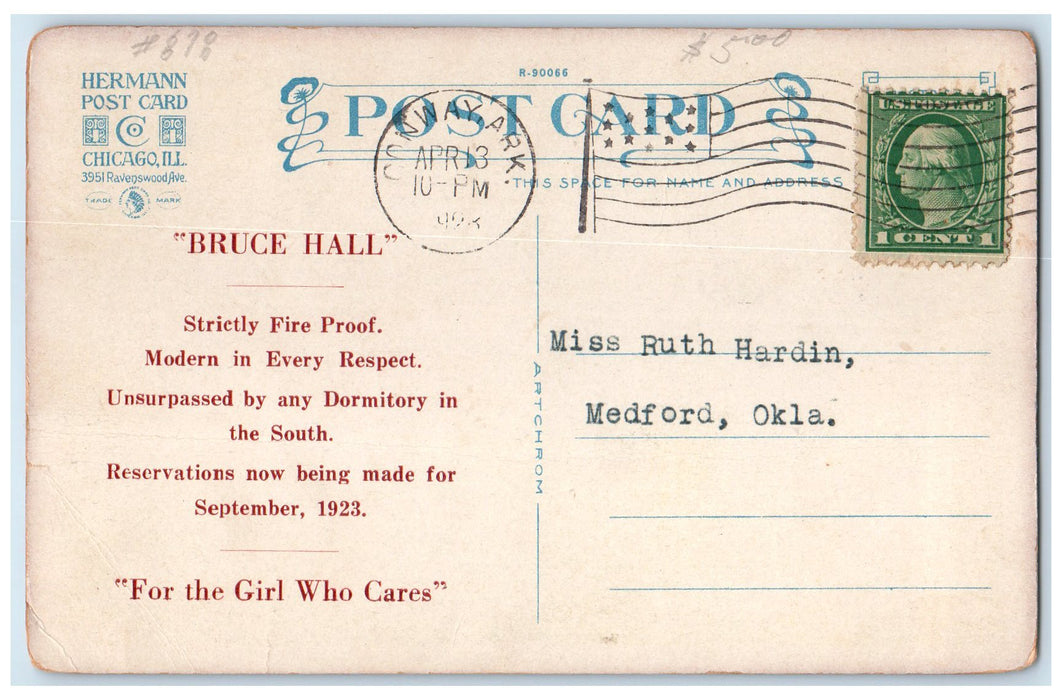 $ 5.00
HERMANN
POST CARD
CHICAGO, ILL.
3951 Ravenswood Ave.
TRADE MARK
R-90066
POST CARD
THIS SPACE FOR NAME AND ADDRESS
CONWAY, ARK
APR 13
10-PM
U.S. POSTAGE
1 CENT 1
"BRUCE HALL"
Strictly Fire Proof.
Modern in Every Respect.
Unsurpassed by any Dormitory in
the South.
Reservations now being made for
September, 1923.
"For the Girl Who Cares"
ARTCHROM
Miss Ruth Hardin,
Medford, Okla.